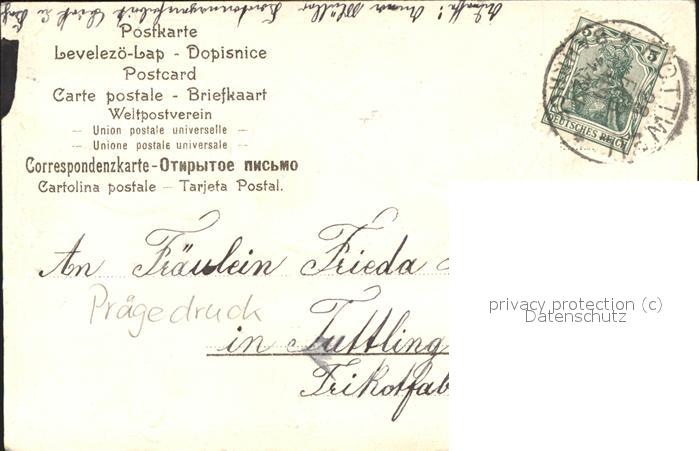 Postkarte
Levelező-Lap - Dopisnice
Postcard
Carte postale - Briefkaart
Weltpostverein
— Union postale universelle —
— Unione postale universale —
Correspondenzkarte - Открытое письмо
Cartolina postale — Tarjeta Postal.
5 5
DEUTSCHES REICH
An Fräulein Frieda
Prägedruck
in Tuttling
Trikotfab
privacy protection (c)
Datenschutz